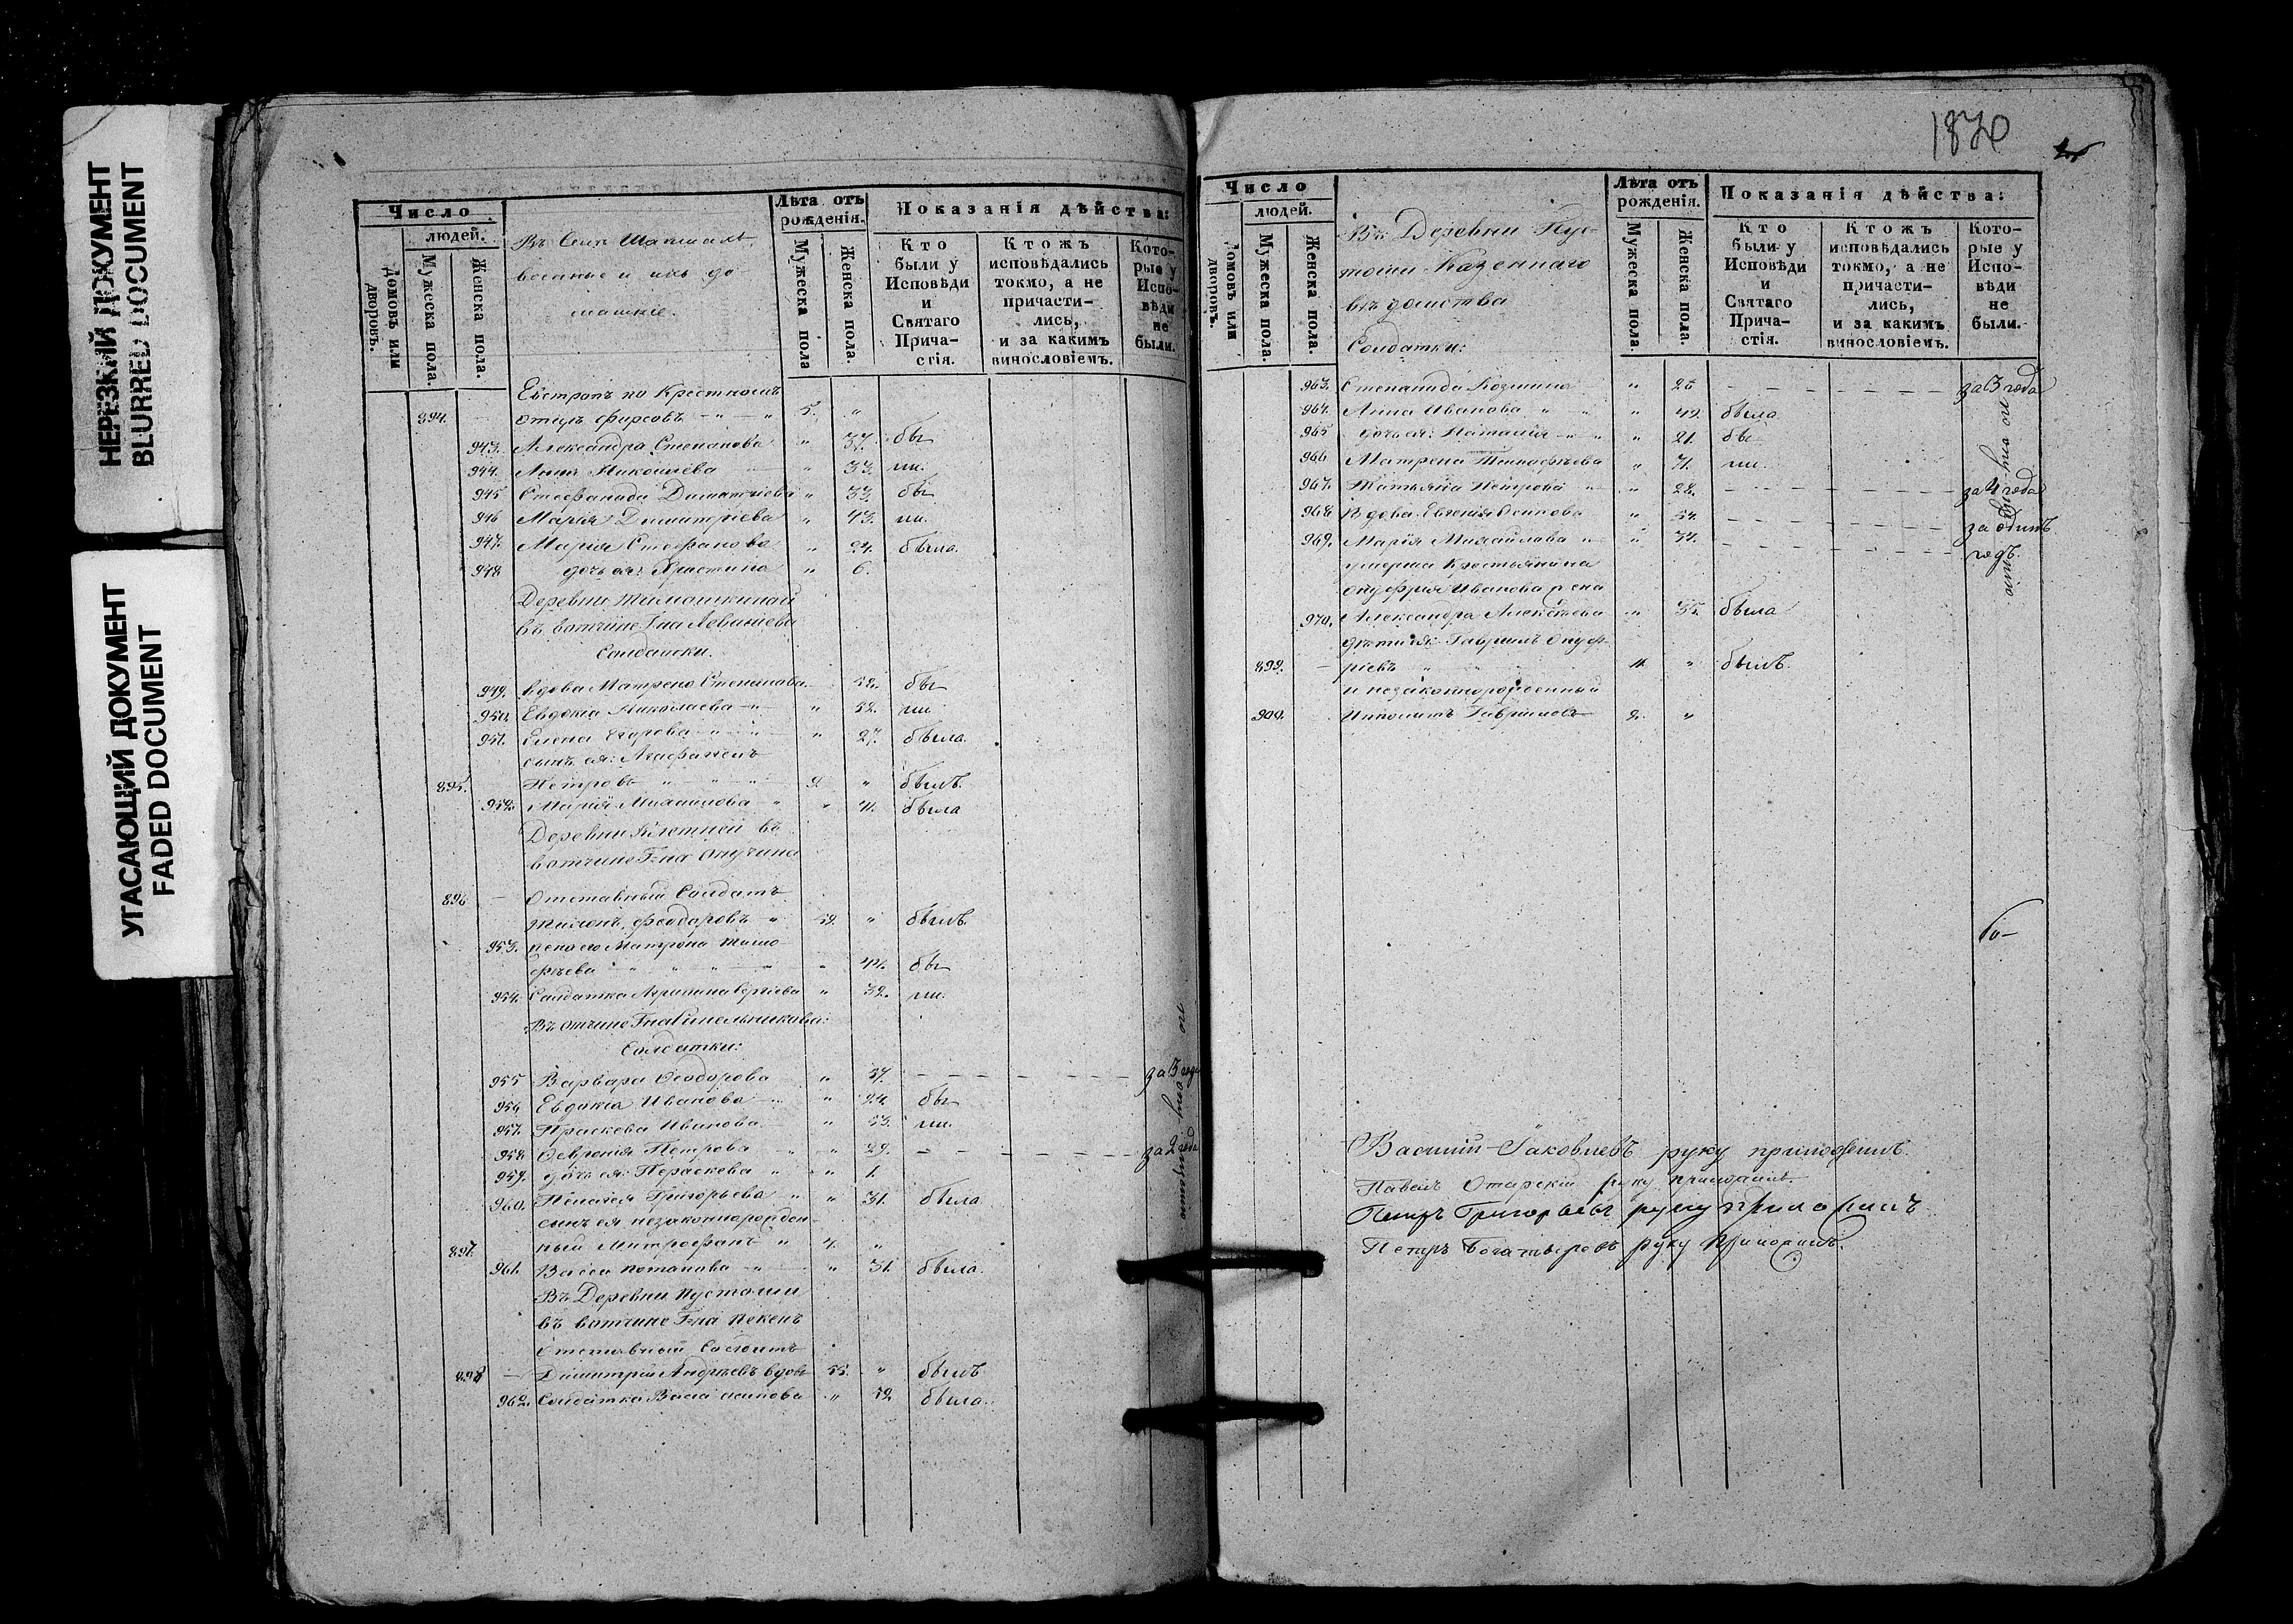 НЕРЕЗКИЙ ДОКУМЕНТ
BLURRED DOCUMENT
УГАСАЮЩИЙ ДОКУМЕНТ
FADED DOCUMENT
Число
людей.
Домовъ или дворовъ.
Мужеска пола.
Женска пола.
военные и ихъ до
машніе.
Лѣта отъ рожденія.
Мужеска пола
Женска пола.
Показанія дѣйства:
Кто были у Исповѣди и Святаго Причастія.
Ктожъ исповѣдались токмо, а не причастились, и за какимъ винословіемъ.
Которые у Исповѣди не были.
по Крестномъ
894. отцѣ Фирсовъ 5. "
943. Александра Степанова " 37. бы
944. Анна Николаева 33. ли.
945 Стефанида " 33. бы
946 Марія Димитріева " 43. ли.
947. Марія Стефанова " 24. была.
948 дочь ея: Христина " 6.
Деревни Тимошкиной
въ вотчине Гна
Солдатски.
949. вдова Матрена Степанова 52. бы
950. Евдокіа Николаева " 52. ли.
951. Елена Егорова " 27. была.
сынъ ея:
895. Петровъ 9. " былъ.
952. Марія Михаилова " была
Деревни въ
вотчине Г-на
896 — Отставный Солдатъ
Феодоровъ " 59. " былъ.
953. жена его Матрона Тимо
феева " бы
954. Солдатка Агрипина Сергіева " 32. ли.
Въ отчине Гна
Солдатки:
955 Варвара Феодорова " 37. за 3 года
956 Евдокіа Иванова " 24. бы
957. Праскева Иванова " 53. ли.
958. Петрова " 29. за 2 года
959. дочь ея: Параскева " 1.
960. Пелагея Григорьева " 31. была
сынъ ея незаконнорожден
897. ный Митрофанъ " 4. "
961. Васса Потапова " 31. была.
Въ Деревни Пустоши
въ вотчине Г-на
Отставный Солдатъ
898 — Димитрій Андреевъ вдовъ 55. " былъ
962. Солдатка Васса Осипова " 52 была.
1870
Число
людей.
Домовъ или дворовъ.
Мужеска пола.
Женска пола.
Въ Деревни Пус
тоши Казеннаго
вѣдомства
Солдатки:
Лѣта отъ рожденія.
Мужеска пола.
Женска пола.
Показанія дѣйства:
Кто были у Исповѣди и Святаго Причастія.
Ктожъ исповѣдались токмо, а не причастились, и за какимъ винословіемъ.
Которые у Исповѣди не были.
963. Степанида Козмина " 26 за 3 года
964. Анна Иванова " 49. была
965 дочь ея: Наталія " 21. бы
966 Матрена Тимофеева " ли.
967. Татьяна Петрова " 28. за 4 года
968 Вдова Евгенія Осипова " 54. за одинъ
969. Марія Михайлова " 34. годъ.
умерша Крестьянина
Онуфрія Иванова жена
970. Александра Алексѣева " 35. была
дѣти ея: Гавриилъ Онуф
899. — ріевъ " былъ.
и незаконнорожденный
900. Ипполитъ Гавриловъ 2. "
Василій Іаковлевъ руку приложилъ
Павелъ руку приложилъ.
Петръ Григорьевъ руку приложилъ
Петръ Богатыревъ руку приложилъ.